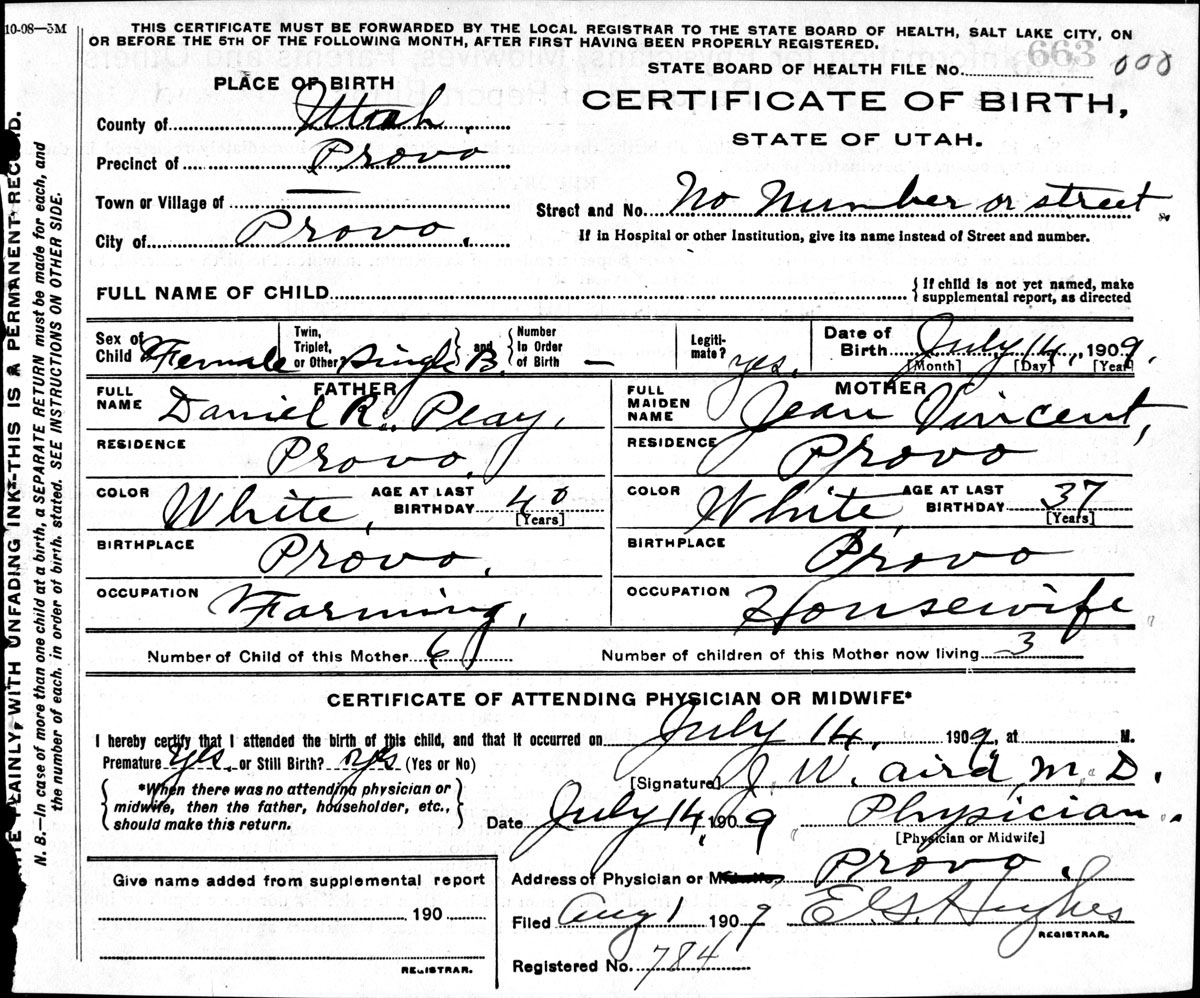 10-08—5M
THIS CERTIFICATE MUST BE FORWARDED BY THE LOCAL REGISTRAR TO THE STATE BOARD OF HEALTH, SALT LAKE CITY, ON
OR BEFORE THE 5TH OF THE FOLLOWING MONTH, AFTER FIRST HAVING BEEN PROPERLY REGISTERED.
663
STATE BOARD OF HEALTH FILE No.
PLACE OF BIRTH
CERTIFICATE OF BIRTH,
STATE OF UTAH.
County of Utah.
Precinct of Provo
Town or Village of —
City of Provo.
Street and No. No Number or street
If in Hospital or other Institution, give its name instead of Street and number.
FULL NAME OF CHILD
{ If child is not yet named, make
supplemental report, as directed
Sex of
Child Female
Twin,
Triplet,
or Other? Single
and B.
Number
In Order
of Birth —
Legiti-
mate? yes.
Date of
Birth July 14, 1909.
[Month] [Day] [Year]
FATHER
FULL
NAME Daniel R. Peay,
RESIDENCE Provo.
COLOR White, AGE AT LAST
BIRTHDAY 40
[Years]
BIRTHPLACE Provo.
OCCUPATION Farming,
MOTHER
FULL
MAIDEN
NAME Jean Vincent,
RESIDENCE Provo
COLOR White, AGE AT LAST
BIRTHDAY 37
[Years]
BIRTHPLACE Provo
OCCUPATION Housewife
Number of Child of this Mother 6 Number of children of this Mother now living 3
CERTIFICATE OF ATTENDING PHYSICIAN OR MIDWIFE*
I hereby certify that I attended the birth of this child, and that it occurred on July 14, 1909, at M.
Premature Yes, or Still Birth? yes (Yes or No)
{ *When there was no attending physician or
midwife, then the father, householder, etc.,
should make this return. }
[Signature] J. W. Aird, M. D.
Date July 14, 1909, Physician.
[Physician or Midwife]
Address of Physician or Provo.
Filed Aug 1 1909 E. G. Hughes
REGISTRAR.
Registered No. 784
Give name added from supplemental report
190
REGISTRAR.
PLAINLY, WITH UNFADING INK--THIS IS A PERMANENT RECORD.
N. B.—In case of more than one child at a birth, a SEPARATE RETURN must be made for each, and
the number of each, in order of birth, stated. SEE INSTRUCTIONS ON OTHER SIDE.